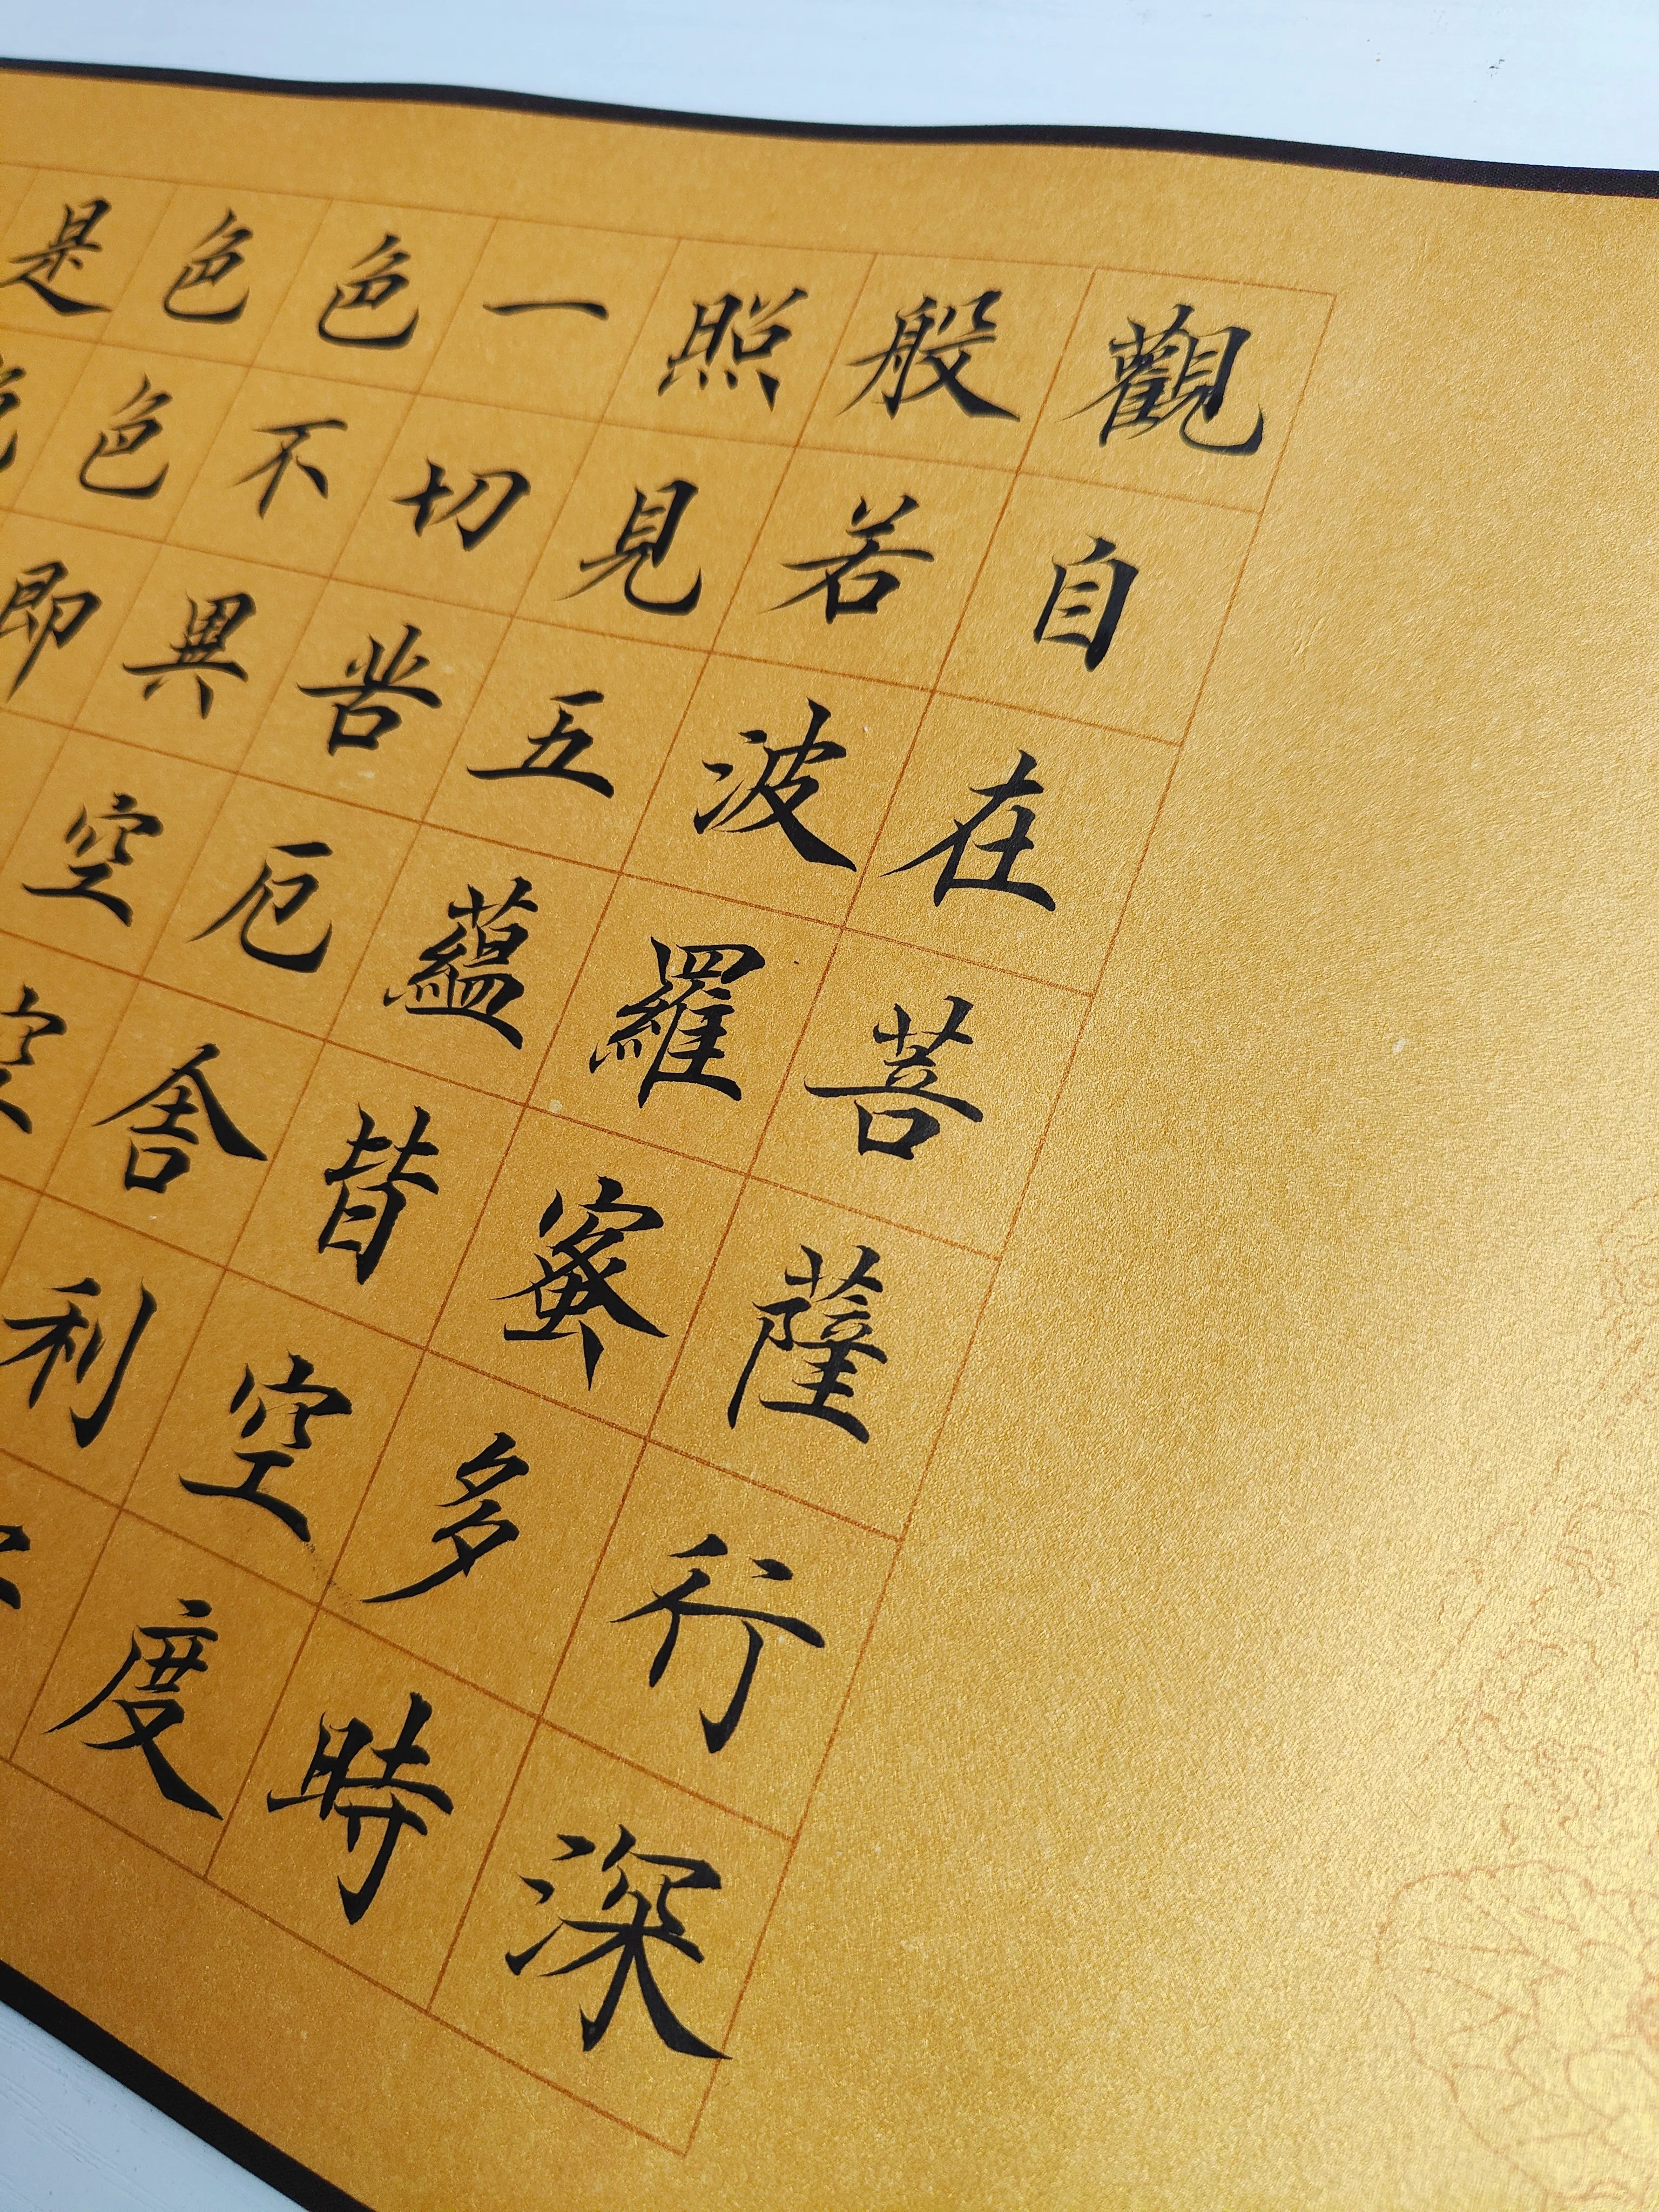 觀自在菩薩行深
般若波羅蜜多時
照見五蘊皆空度
一切苦厄舍利
色不異空空
色色即
是